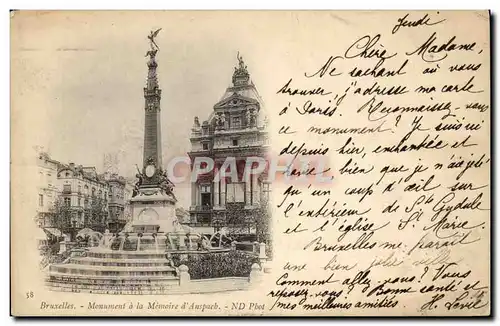 Jeudi
Chère Madame,
Ne sachant où vous
trouver, j'adresse ma carte
à Paris. Reconnaissez-vous
ce monument ? Je suis ici
depuis hier, enchantée et
bien que je n'ai jeté
qu'un coup d'œil sur
l'extérieur de Ste Gudule
et l'église Ste Marie.
Bruxelles me paraît
une bien jolie ville
Comment allez-vous ? Vous
reposez-vous ? Bonne santé et
mes meilleures amitiés
CPARAMA.COM
38
Bruxelles. - Monument à la Mémoire d'Anspach. - ND Phot